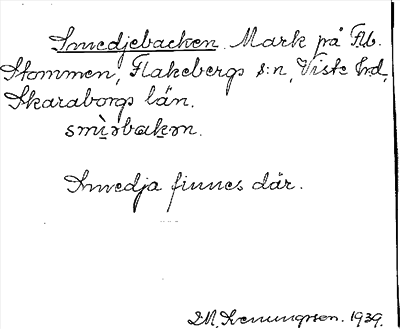 Smedjebacken. Mark på Flb.
Stommen, Flakebergs s:n, Viste hrd,
Skaraborgs län.
smìəbakən.
Smedja finnes där.
1939.